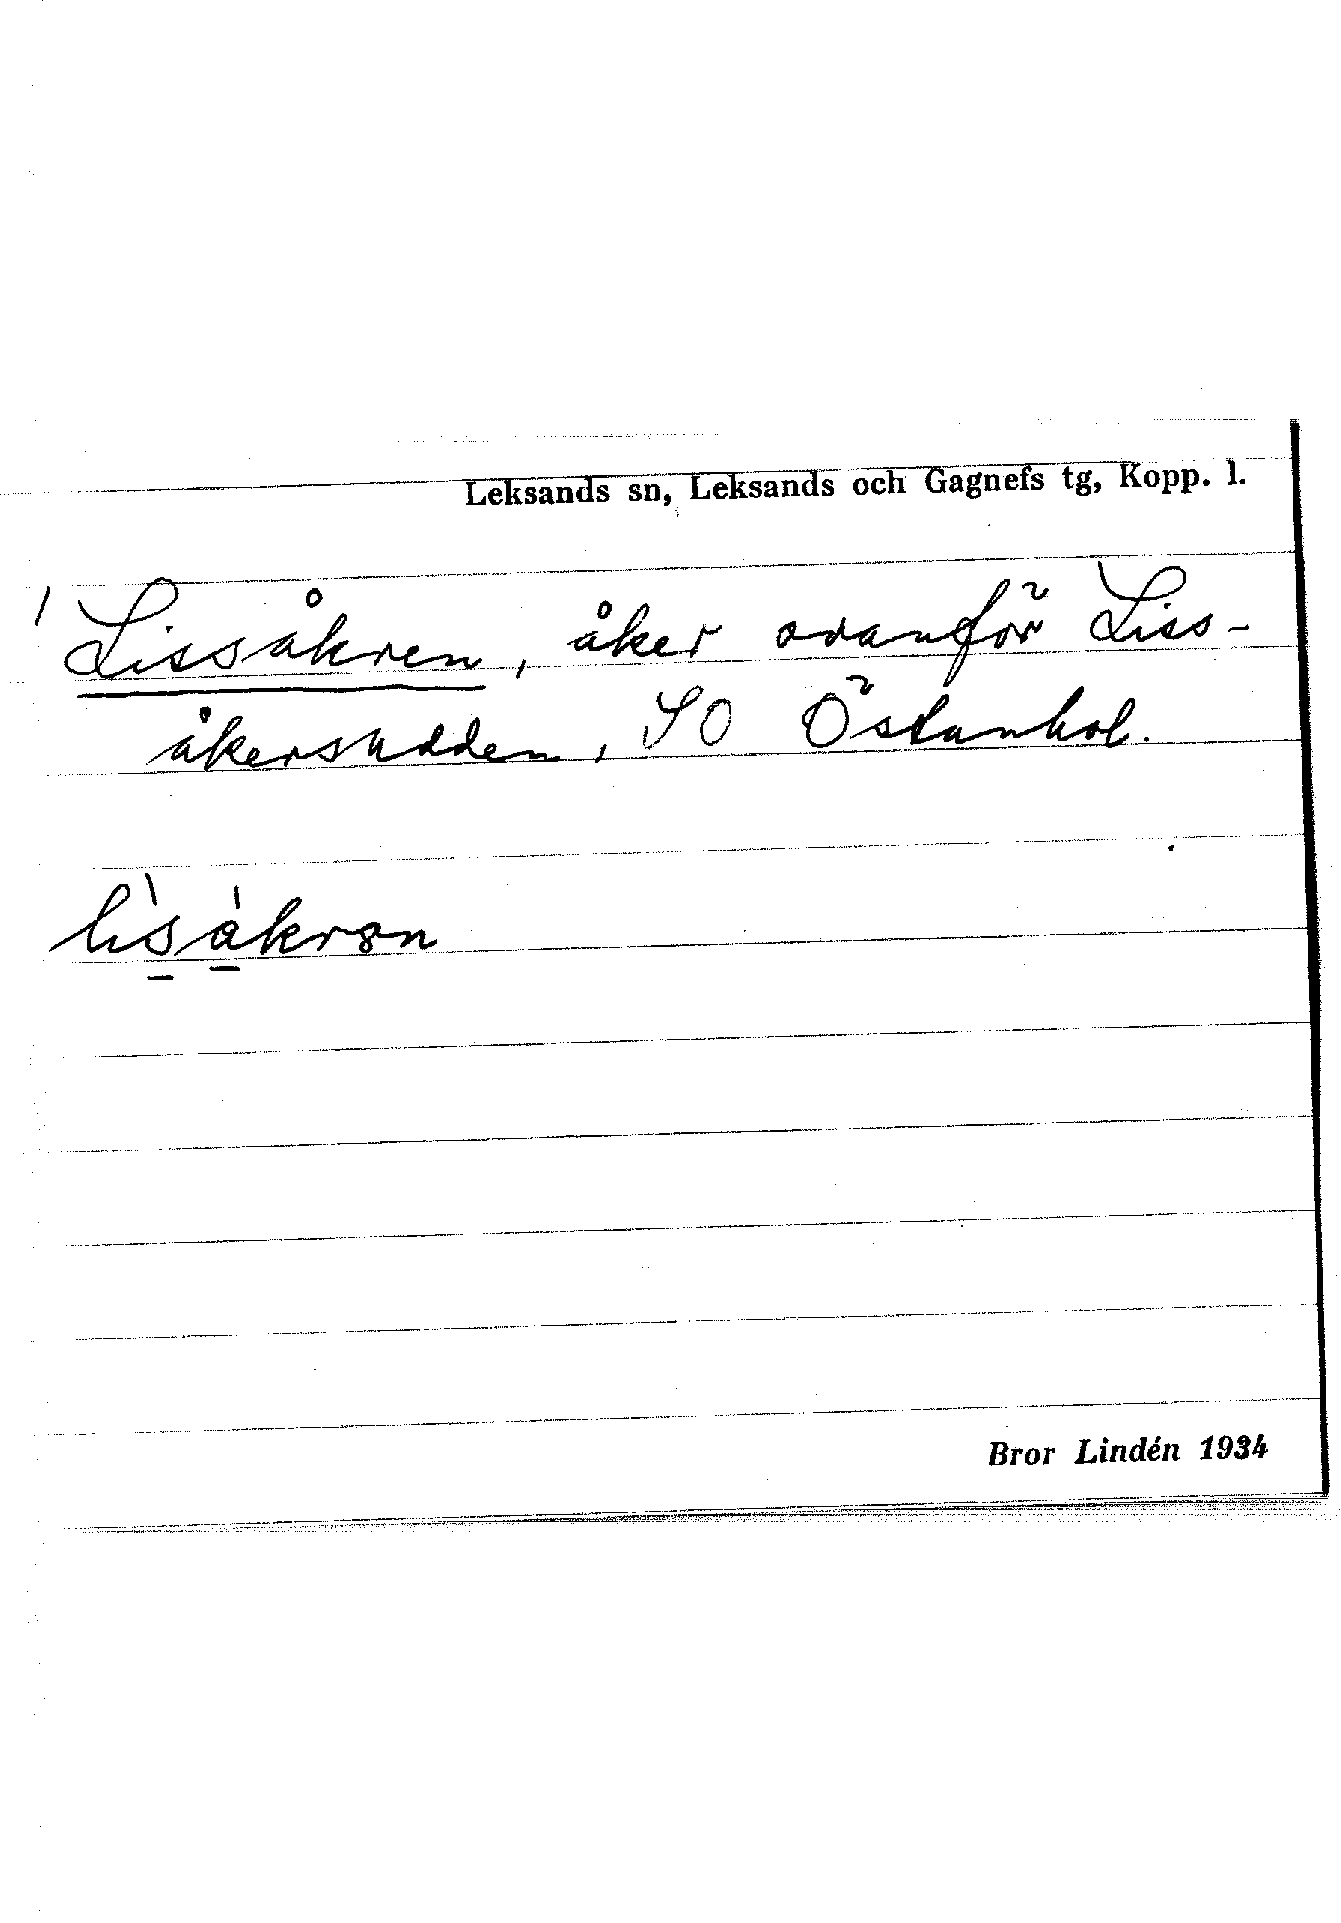 Leksands sn, Leksands och Gagnefs tg, Kopp. l.
Lissåkren, åker ovanför Liss-
åkersudden, SO Östanhol.
lìsåkrən
Bror Lindén 1934